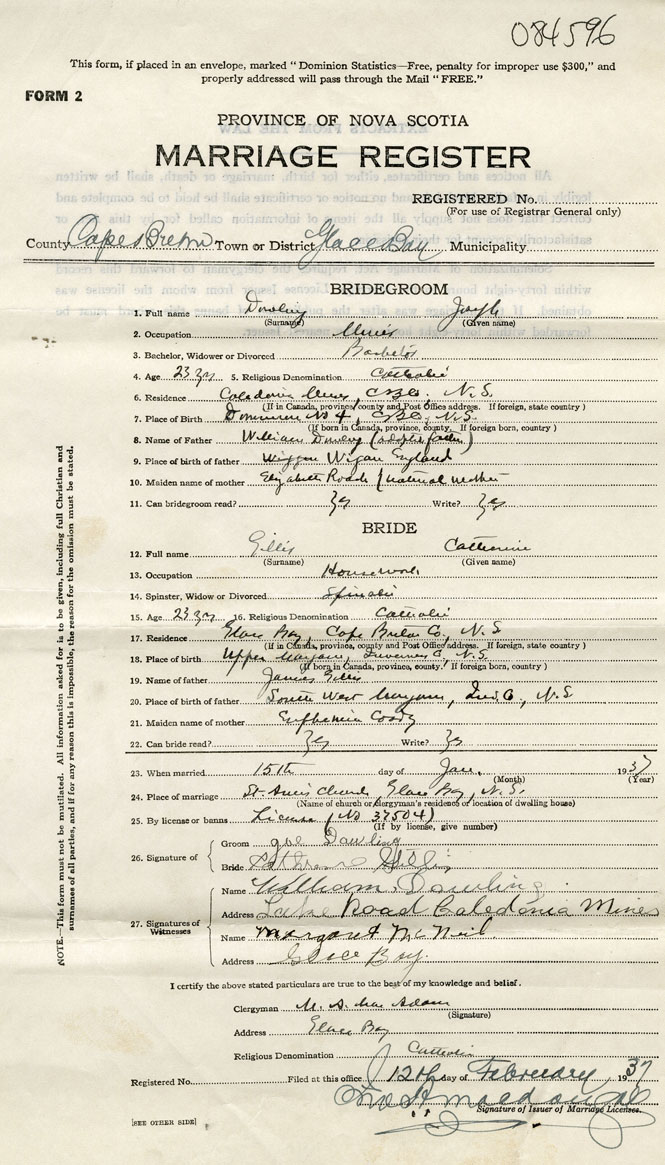 084596
This form, if placed in an envelope, marked "Dominion Statistics—Free, penalty for improper use $300," and
properly addressed will pass through the Mail "FREE."
FORM 2
PROVINCE OF NOVA SCOTIA
MARRIAGE REGISTER
REGISTERED No.
(For use of Registrar General only)
County Cape Breton Town or District Glace Bay Municipality
BRIDEGROOM
1. Full name Joseph
(Surname) (Given name)
2. Occupation Miner
3. Bachelor, Widower or Divorced Bachelor
4. Age 23 yrs 5. Religious Denomination Catholic
6. Residence Caledonia Mines, C.B.Co., N.S.
(If in Canada, province, county and Post Office address. If foreign, state country)
7. Place of Birth Dominion No 4, C.B.Co., N.S.
(If born in Canada, province, county. If foreign born, country)
8. Name of Father William Dowling (adopted father)
9. Place of birth of father Wiggan Wigan England
10. Maiden name of mother Elizabeth (natural mother
11. Can bridegroom read? Yes Write? Yes
BRIDE
12. Full name Gillis Catherine
(Surname) (Given name)
13. Occupation Housework
14. Spinster, Widow or Divorced Spinster
15. Age 23 yrs 16. Religious Denomination Catholic
17. Residence Glace Bay, Cape Breton Co., N.S.
(If in Canada, province, county and Post Office address. If foreign, state country)
18. Place of birth Upper Margaree, Inverness C., N.S.
(If born in Canada, province, county. If foreign born, country)
19. Name of father James Gillis
20. Place of birth of father South West Margaree, Inv. C., N.S.
21. Maiden name of mother Euphemia Coady
22. Can bride read? Yes Write? Yes
23. When married 15th day of Jan. 1937
(Month) (Year)
24. Place of marriage St. Anns Church, Glace Bay, N.S.
(Name of church or clergyman's residence or location of dwelling house)
25. By license or banns License (No 37504)
(If by license, give number)
26. Signature of Groom Joe Dowling
Bride Gillis
27. Signatures of Witnesses Name William Dowling
Address Lake Road Caledonia Mines
Name Margaret McNeil
Address Glace Bay.
I certify the above stated particulars are true to the best of my knowledge and belief.
Clergyman M. A. MacAdam
(Signature)
Address Glace Bay
Religious Denomination Catholic
Registered No. Filed at this office 12th day of February 1937
Signature of Issuer of Marriage Licenses.
[SEE OTHER SIDE]
NOTE.—This form must not be mutilated. All information asked for is to be given, including full Christian and
surnames of all parties, and if for any reason this is impossible, the reason for the omission must be stated.